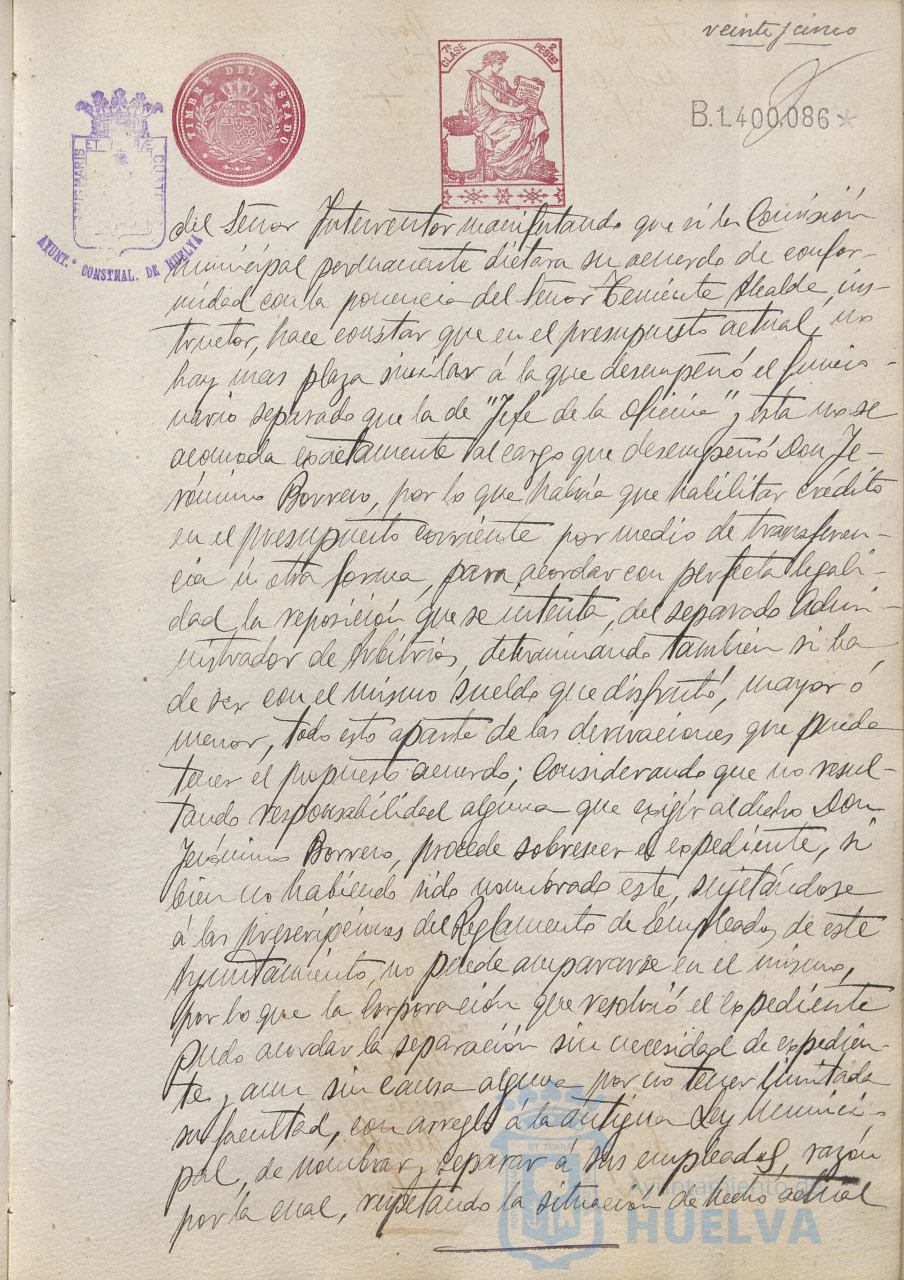 veinte y cinco
TIMBRE DEL ESTADO
7ª CLASE 2 PESETAS
B.1.400.086*
AYUNT.º CONSTNAL. DE HUELVA
del Señor Interventor manifestando que si la Comisión
municipal permanente dictara su acuerdo de confor-
midad con la ponencia del Señor Teniente Alcalde ins-
tructor, hace constar que en el presupuesto actual no
hay mas plaza similar á la que desempeñó el funcio-
nario separado que la de "Jefe de la Oficina" y esta no se
acomoda exactamente al cargo que desempeñó Don Je-
rónimo Borrero, por lo que habría que habilitar crédito
en el presupuesto corriente por medio de transferen-
cia ú otra forma, para acordar con perfecta legali-
dad la reposición que se intenta, del separado Admi-
nistrador de Arbitrios, determinando tambien si ha
de ser con el mismo sueldo que disfrutó, mayor ó
menor, todo esto aparte de las derivaciones que pueda
tener el propuesto acuerdo; Considerando que no resul-
tando responsabilidad alguna que exigir al dicho Don
Jerónimo Borrero, procede sobreseer el expediente, si
bien no habiendo sido nombrado este, sujetándose
á las prescripciones del Reglamento de Empleados de este
Ayuntamiento, no puede ampararse en el mismo,
por lo que la Corporación que resolvió el expediente
pudo acordar la separación sin necesidad de expedien-
te, y aun sin causa alguna por no tener limitada
su facultad, con arreglo á la antigua Ley Munici-
pal, de nombrar y separar á sus empleados, razón
por la cual, respetando la situación de hecho actual
Ayuntamiento de
HUELVA